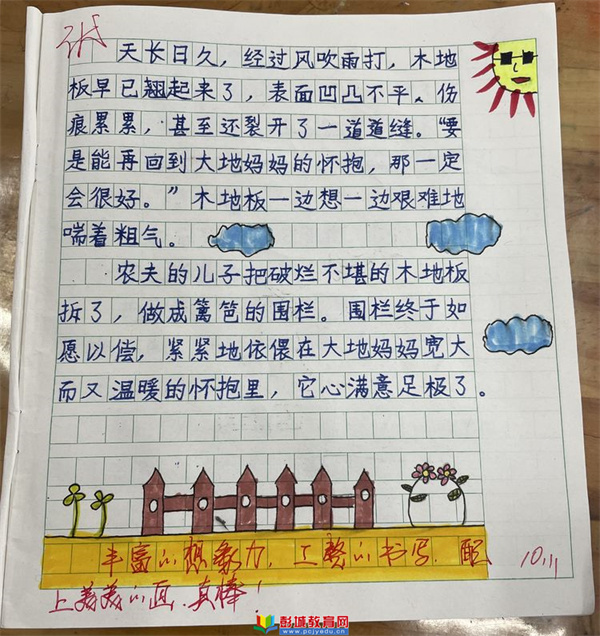 天长日久，经过风吹雨打，木地
板早已翘起来了，表面凹凸不平、伤
痕累累，甚至还裂开了一道道缝。“要
是能再回到大地妈妈的怀抱，那一定
会很好。”木地板一边想一边艰难地
喘着粗气。
农夫的儿子把破烂不堪的木地板
拆了，做成篱笆的围栏。围栏终于如
愿以偿，紧紧地依偎在大地妈妈宽大
而又温暖的怀抱里，它心满意足极了。
丰富的想象力，工整的书写，配
上美美的画，真棒！
彭城教育网
www.pcjyedu.cn